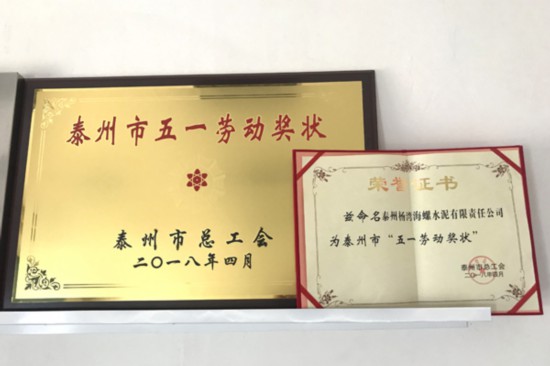 泰州市五一劳动奖状
泰州市总工会
二〇一八年四月
荣誉证书
兹命名泰州杨湾海螺水泥有限责任公司
为泰州市“五一劳动奖状”
泰州市总工会
二〇一八年四月